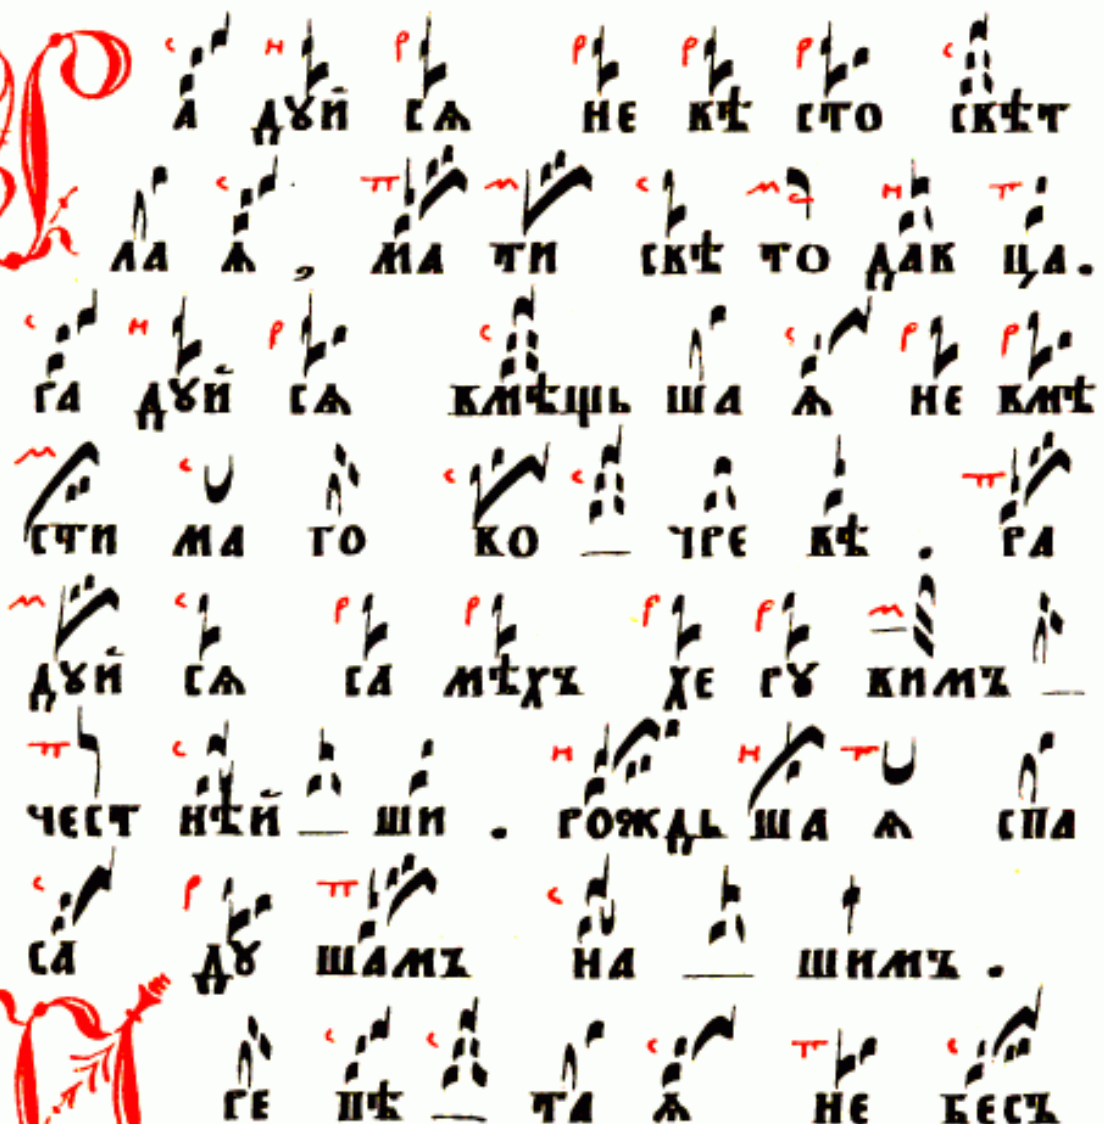 Р А ДꙊЙ СѦ НЕ ВѢ СТО СВѢТ
ЛА Ѧ, МА ТИ СВѢ ТО ДАВ ЦА.
РА ДꙊЙ СѦ ВМѢЩЬ ША Ѧ НЕ ВМѢ
СТИ МА ГО ВО — ЧРЕ ВѢ. РА
ДꙊЙ СѦ СА МѢХЪ ХЕ РꙊ ВИМЪ —
ЧЕСТ НѢЙ — ШИ. РОЖДЬ ША Ѧ СПА
СА ДꙊ ШАМЪ НА — ШИМЪ.
ГЕ ПѢ — ТА Ѧ НЕ БЕСЪ